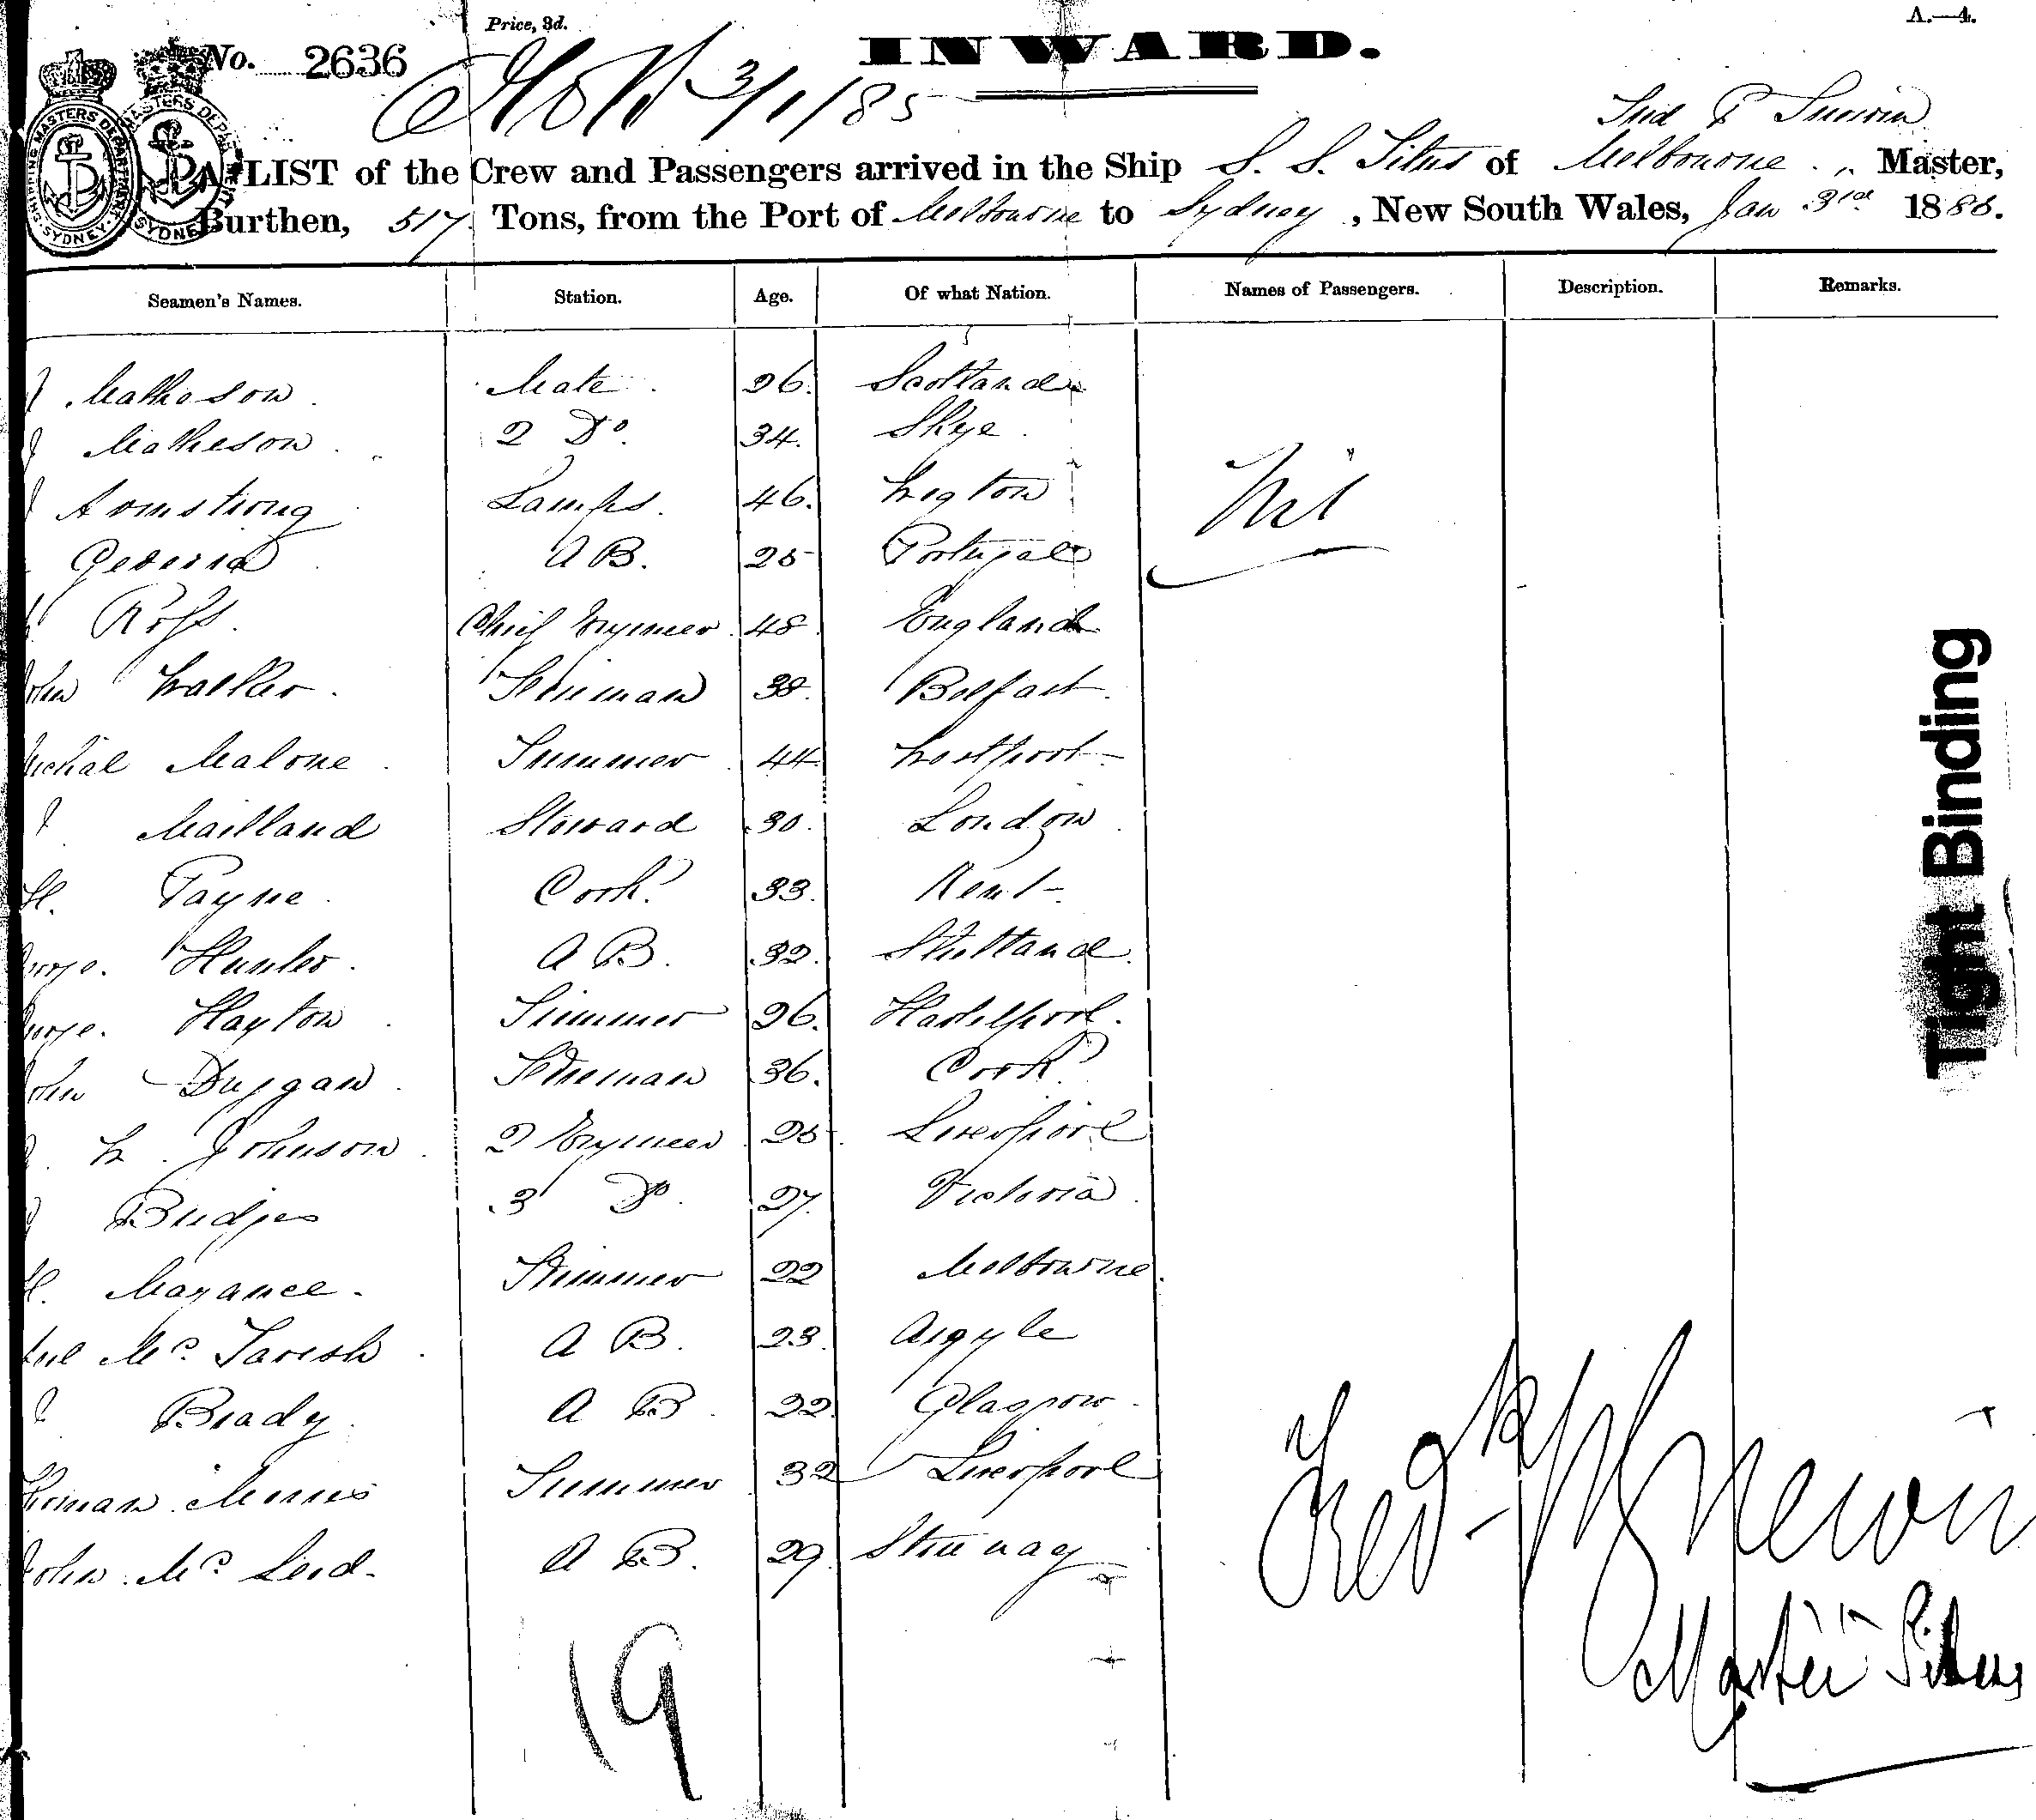 Price, 3d.
A.—4.
No. 2636
INWARD.
3/1/85
SHIPPING MASTERS DEPARTMENT
SYDNEY
A LIST of the Crew and Passengers arrived in the Ship S. S. Titus of Melbourne, Master,
Burthen, 517 Tons, from the Port of Melbourne to Sydney, New South Wales, Jan 3rd 1885.
Seamen's Names. Station. Age. Of what Nation. Names of Passengers. Description. Remarks.
J Matheson Mate 26 Scotland
J Matheson 2 Do 34 Skye
J Armstrong Lamps 46 Wigton Nil
A B. 25 Portugal
Ross Chief Engineer 48 England
John Walker Fireman 38 Belfast
Michial Malone Trimmer 44 Westport
J Maitland Steward 30 London
H. Payne Cook 33 Kent
George Hunter A B. 32 Shetland
George Hayton Trimmer 26 Hartelpool
John Duggan Fireman 36 Cork
W. Johnson 2 Engineer 25 Liverpool
J Bridges 3 Do 27 Victoria
H. Trimmer 22 Melbourne
Mc Tavish A B. 23 Argyle
J Brady A B 22 Glasgow
Morris Trimmer 32 Liverpool
John Mc Leod A B. 29
19
Master Titus
Tight Binding